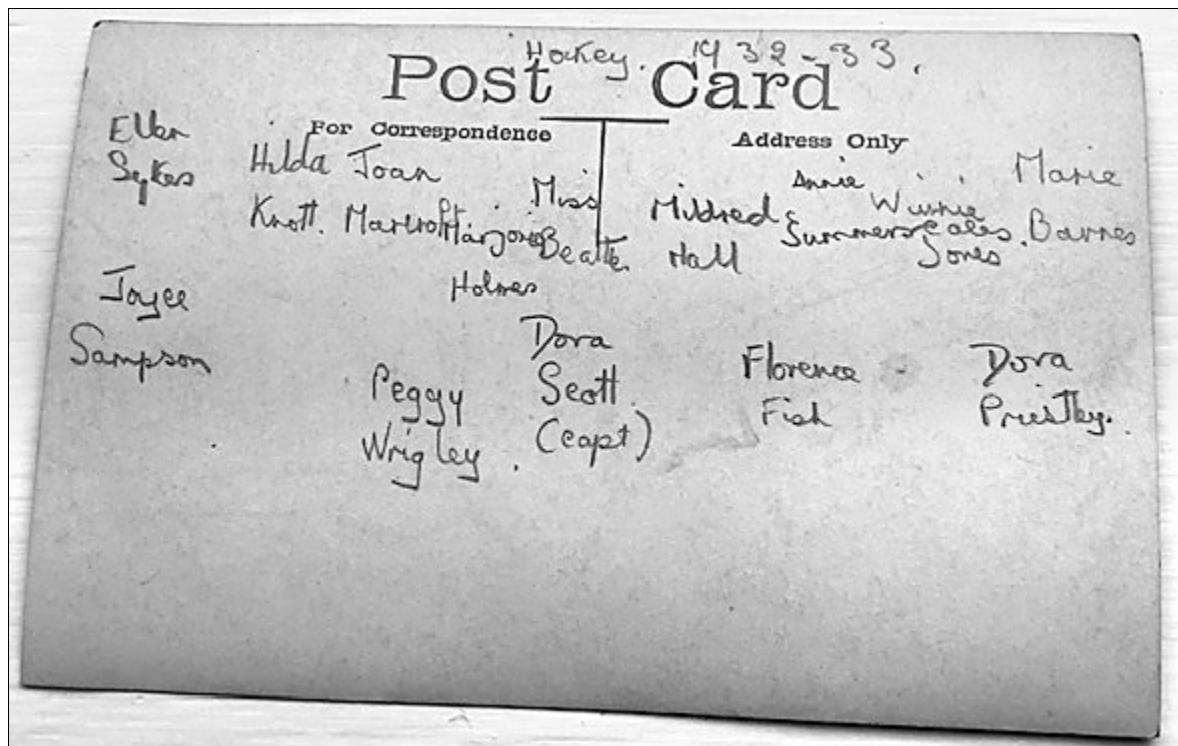 Hockey. 1932-33.
Post Card
For Correspondence
Address Only
Ellen
Sykes
Hilda
Knott.
Joan
Marjorie
Holmes
Miss
Beattie.
Mildred
Hall
Annie
Summerscales.
Winnie
Jones
Marie
Barnes
Joyce
Sampson
Peggy
Wrigley.
Dora
Scott
(capt)
Florence
Fish
Dora
Priestley.